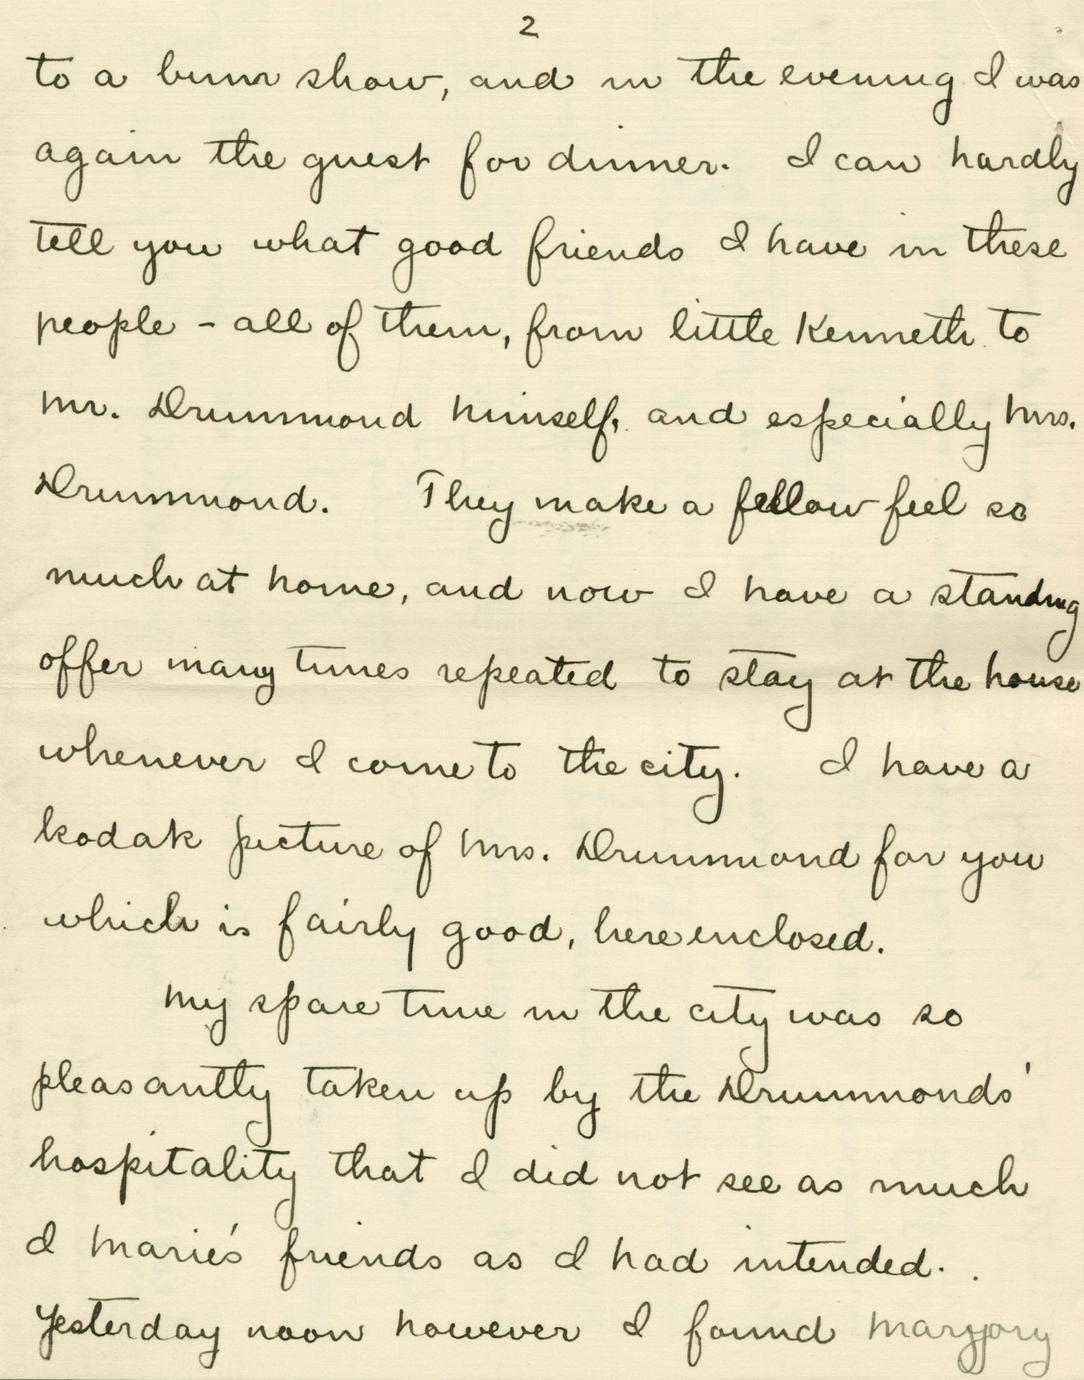 2
to a bum show, and in the evening I was
again the guest for dinner. I can hardly
tell you what good friends I have in these
people - all of them, from little Kenneth to
Mr. Drummond himself, and especially Mrs.
Drummond. They make a fellow feel so
much at home, and now I have a standing
offer many times repeated to stay at the house
whenever I come to the city. I have a
kodak picture of Mrs. Drummond for you
which is fairly good, here enclosed.
My spare time in the city was so
pleasantly taken up by the Drummonds'
hospitality that I did not see as much
I Marie's friends as I had intended.
Yesterday noon however I found Marjory